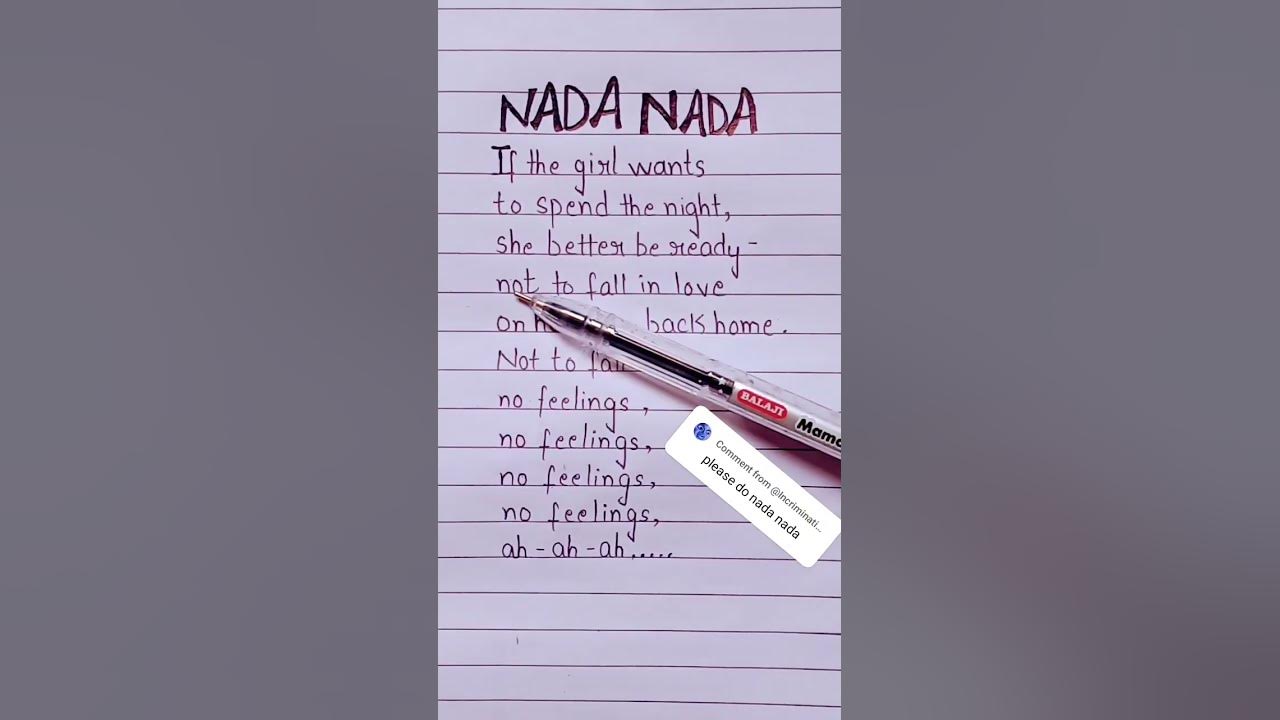 NADA NADA
If the girl wants
to spend the night,
she better be ready-
not to fall in love
on back home.
Not to
no feelings,
no feelings,
no feelings,
no feelings,
ah-ah-ah.....
BALAJI
Comment from @Incriminati...
please do nada nada